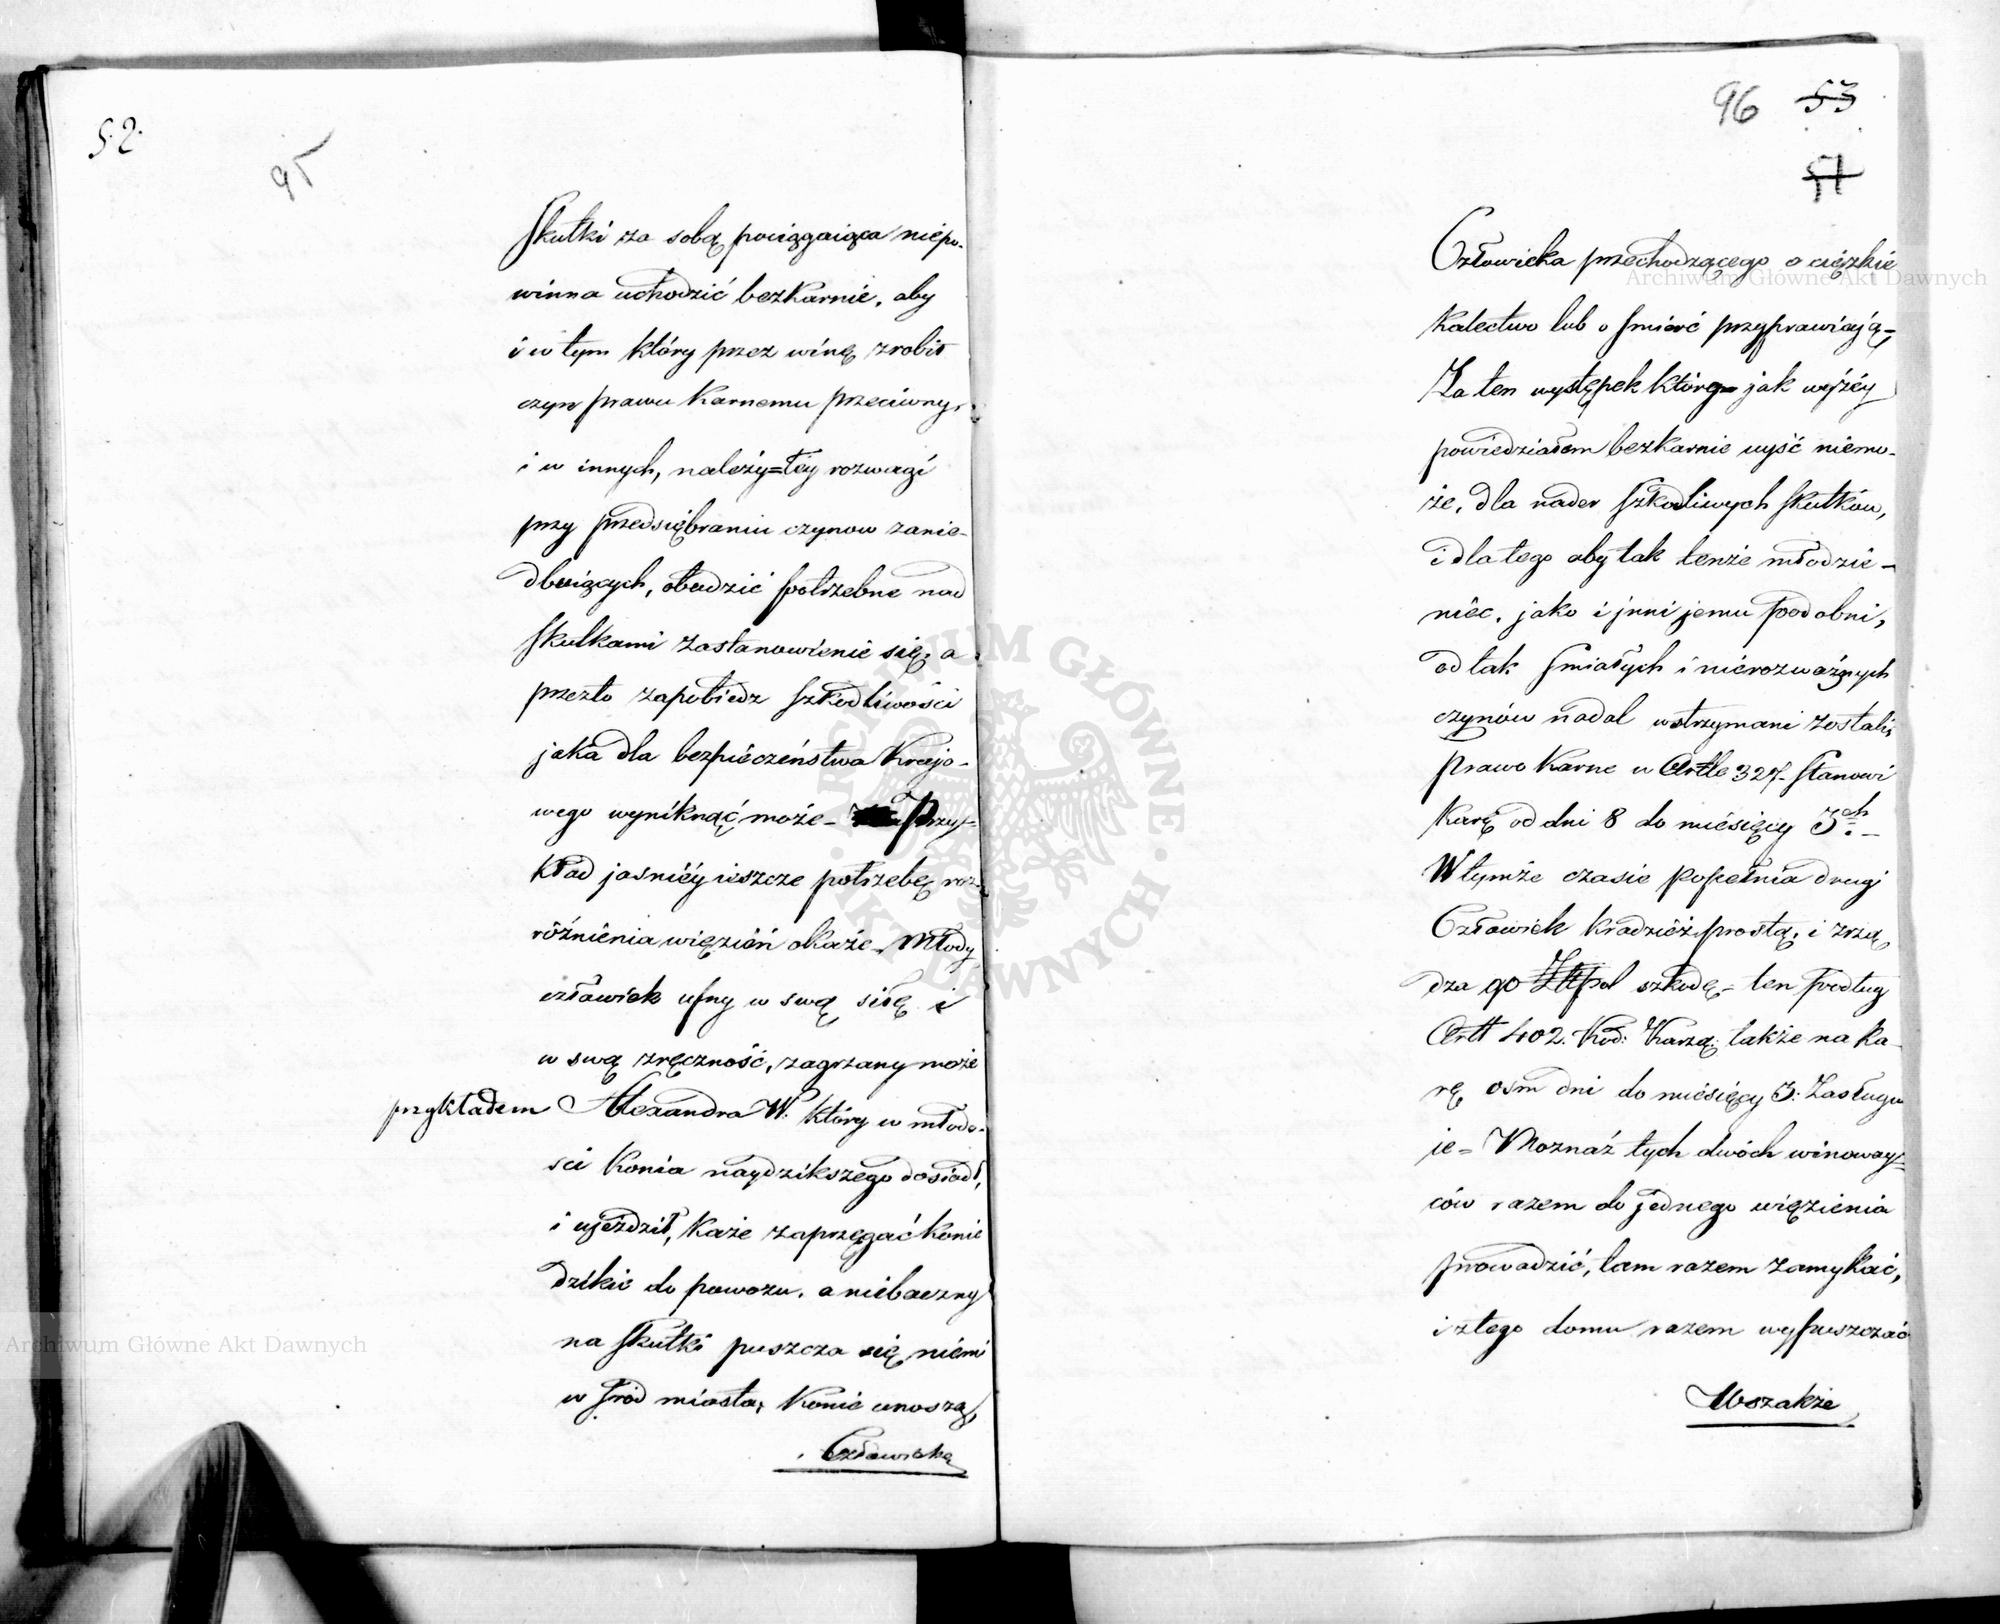 52.
95
Skutki za sobą pociągaiąca niepo-
winna uchodzić bezkarnie, aby
i w tym który przez winę zrobił
czyn prawu karnemu przeciwny,
i w innych, należy=tey rozwagi
przy przedsiębraniu czynow zanie-
dbuiących, obudzić potrzebne nad
skutkami zastanowienie się, a
przezto zapobiedz szkodliwości
jaka dla bezpieczeństwa Krajo-
wego wyniknąć może – Przy-
kład jasniéy ieszcze potrzebę roz-
różnienia więzień okaże. Młody
człowiek ufny w swą siłę i
w swą zręczność, zagrzany może
przykładem Alexandra W. który w młodo-
sci konia naydzikszego dosiadł,
i ujeździł, każe zaprzęgać konie
dzikie do powozu, a niebaczny
na skutki puszcza się niemi
w śród miasta; konie unoszą,
Człowieka
96 53
51
Człowieka przechodzącego o ciężkie
kalectwo lub o śmierć przyprawiają –
Za ten występek który – jak wyżéy
powiedziałem bezkarnie uyść niemo-
że, dla nader szkodliwych skutków,
i dla tego aby tak tenże młodzie-
niec, jako i jnni jemu podobni,
od tak śmiałych i nierozważnych
czynów nadal wstrzymani zostali,
prawo karne w Artle 327. stanowi
karę od dni 8 do miesięcy 3ch. –
W tymże czasie popełnia drugi
Człowiek kradzież prostą, i zrzą
dza 90 Złtpol szkodę – ten podług
Artt 402. Kod: Karzą: także na ka-
rę osm dni do miesięcy 3: zasługu
ie – Możnaż tych dwóch winoway-
ców razem do jednego więzienia
prowadzić, tam razem zamykać,
i z tego domu razem wypuszczać
Wszakże
Archiwum Główne Akt Dawnych
Archiwum Główne Akt Dawnych
ARCHIWUM GŁÓWNE AKT DAWNYCH